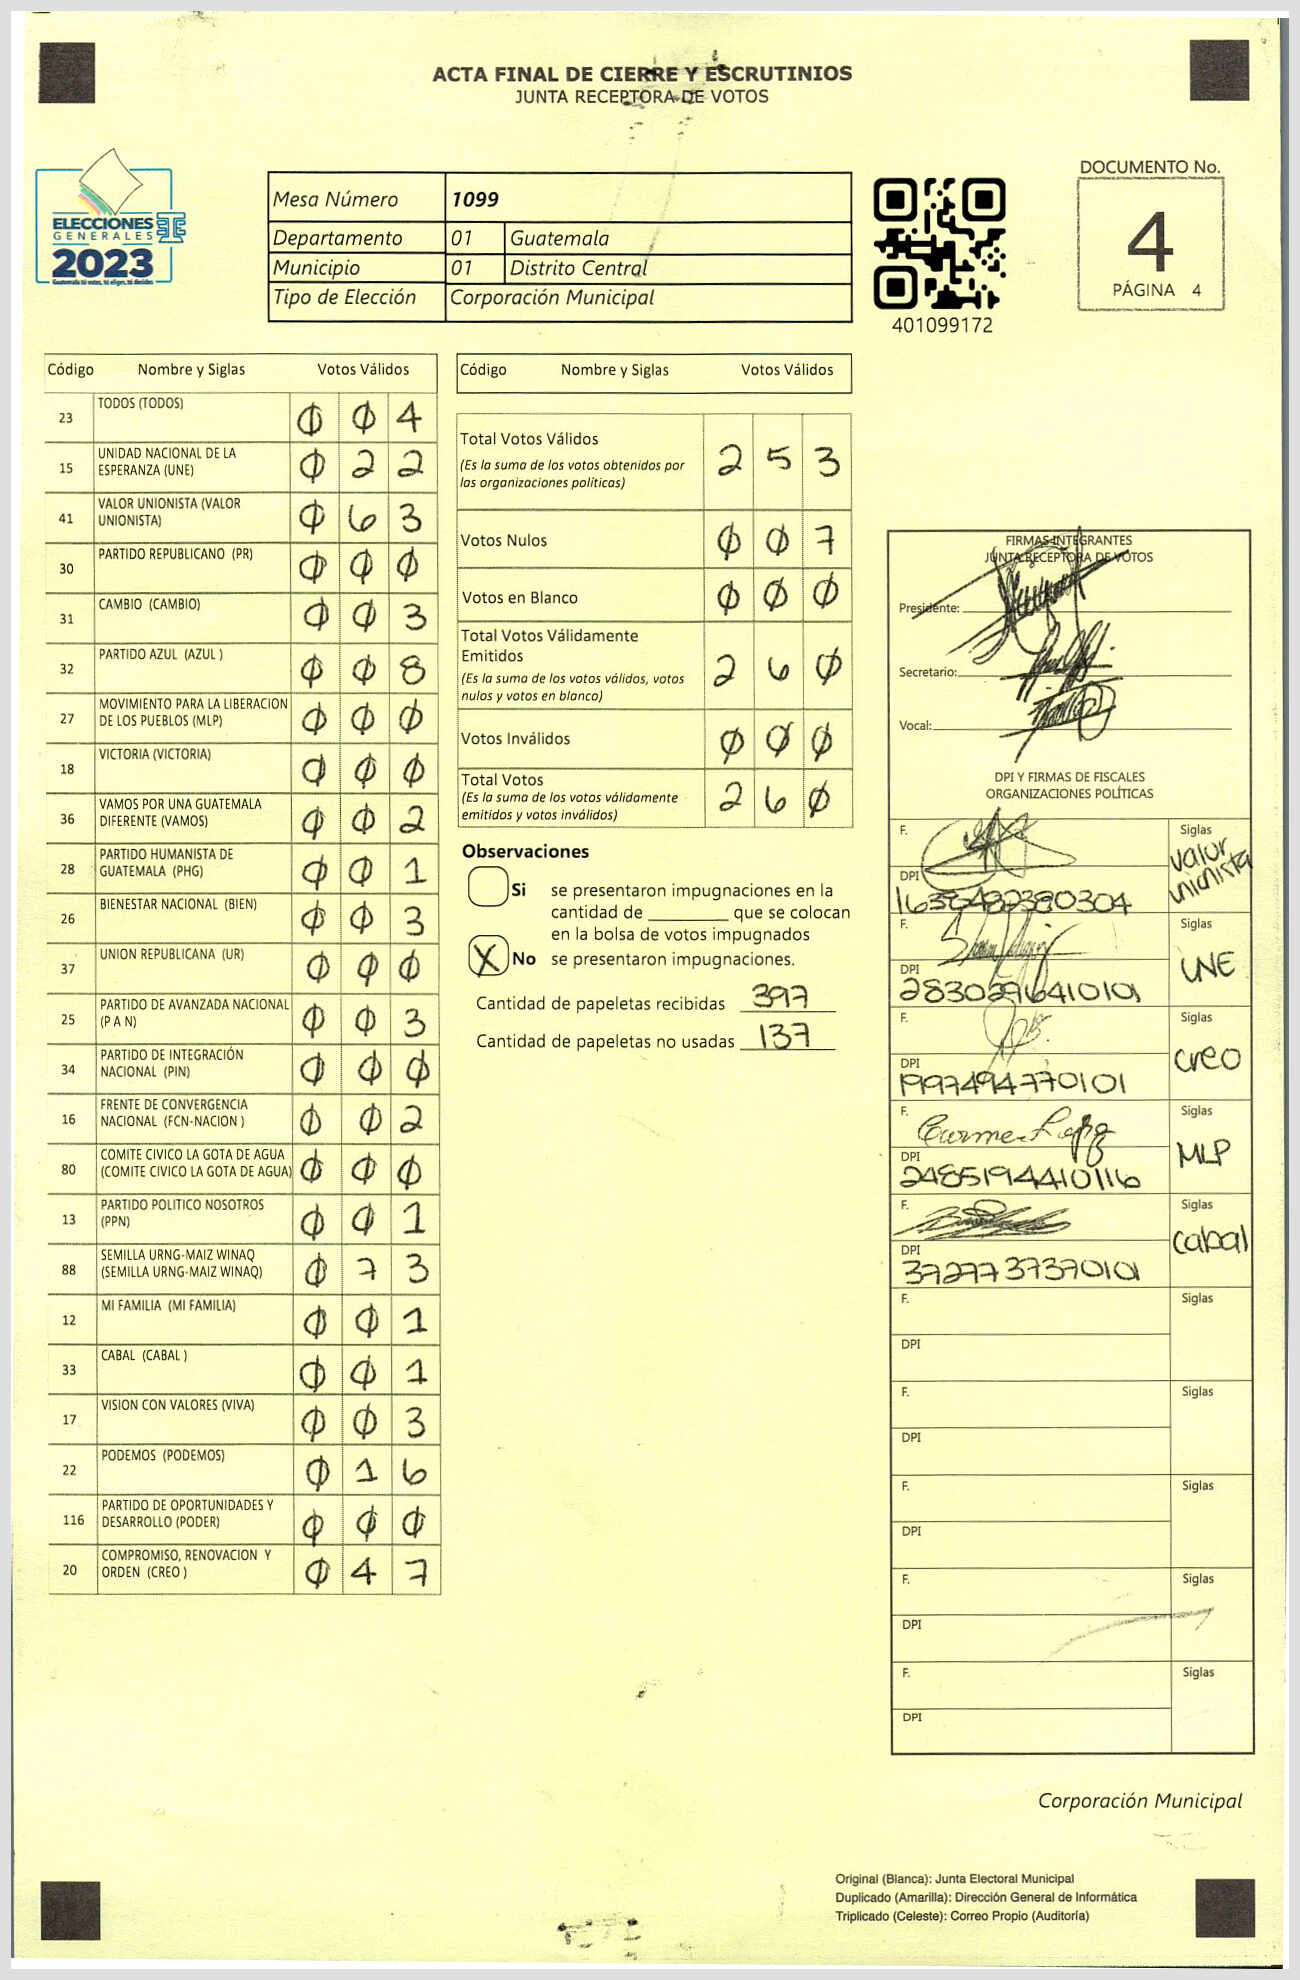 ACTA FINAL DE CIERRE Y ESCRUTINIOS
JUNTA RECEPTORA DE VOTOS
ELECCIONES
GENERALES
2023
Guatemala tú votas, tú eliges, tú decides
Mesa Número 1099
Departamento 01 Guatemala
Municipio 01 Distrito Central
Tipo de Elección Corporación Municipal
401099172
DOCUMENTO No.
4
PÁGINA 4
Código Nombre y Siglas Votos Válidos
23 TODOS (TODOS) 0 0 4
15 UNIDAD NACIONAL DE LA ESPERANZA (UNE) 0 2 2
41 VALOR UNIONISTA (VALOR UNIONISTA) 0 6 3
30 PARTIDO REPUBLICANO (PR) 0 0 0
31 CAMBIO (CAMBIO) 0 0 3
32 PARTIDO AZUL (AZUL ) 0 0 8
27 MOVIMIENTO PARA LA LIBERACION DE LOS PUEBLOS (MLP) 0 0 0
18 VICTORIA (VICTORIA) 0 0 0
36 VAMOS POR UNA GUATEMALA DIFERENTE (VAMOS) 0 0 2
28 PARTIDO HUMANISTA DE GUATEMALA (PHG) 0 0 1
26 BIENESTAR NACIONAL (BIEN) 0 0 3
37 UNION REPUBLICANA (UR) 0 0 0
25 PARTIDO DE AVANZADA NACIONAL (P A N) 0 0 3
34 PARTIDO DE INTEGRACIÓN NACIONAL (PIN) 0 0 0
16 FRENTE DE CONVERGENCIA NACIONAL (FCN-NACION ) 0 0 2
80 COMITE CIVICO LA GOTA DE AGUA (COMITE CIVICO LA GOTA DE AGUA) 0 0 0
13 PARTIDO POLITICO NOSOTROS (PPN) 0 0 1
88 SEMILLA URNG-MAIZ WINAQ (SEMILLA URNG-MAIZ WINAQ) 0 7 3
12 MI FAMILIA (MI FAMILIA) 0 0 1
33 CABAL (CABAL ) 0 0 1
17 VISION CON VALORES (VIVA) 0 0 3
22 PODEMOS (PODEMOS) 0 1 6
116 PARTIDO DE OPORTUNIDADES Y DESARROLLO (PODER) 0 0 0
20 COMPROMISO, RENOVACION Y ORDEN (CREO ) 0 4 7
Código Nombre y Siglas Votos Válidos
Total Votos Válidos 2 5 3
(Es la suma de los votos obtenidos por
las organizaciones políticas)
Votos Nulos 0 0 7
Votos en Blanco 0 0 0
Total Votos Válidamente
Emitidos 2 6 0
(Es la suma de los votos válidos, votos
nulos y votos en blanco)
Votos Inválidos 0 0 0
Total Votos 2 6 0
(Es la suma de los votos válidamente
emitidos y votos inválidos)
Observaciones
Si se presentaron impugnaciones en la
cantidad de ________ que se colocan
en la bolsa de votos impugnados
X No se presentaron impugnaciones.
Cantidad de papeletas recibidas 397
Cantidad de papeletas no usadas 137
FIRMAS INTEGRANTES
JUNTA RECEPTORA DE VOTOS
Presidente:
Secretario:
Vocal:
DPI Y FIRMAS DE FISCALES
ORGANIZACIONES POLÍTICAS
F. Siglas
valor unionista
DPI
F. Siglas
UNE
DPI
F. Siglas
creo
DPI
1997494770101
F. Carmen Siglas
MLP
DPI
2485194410116
F. Siglas
cabal
DPI
3727737370101
F. Siglas
DPI
F. Siglas
DPI
F. Siglas
DPI
F. Siglas
DPI
F. Siglas
DPI
Corporación Municipal
Original (Blanca): Junta Electoral Municipal
Duplicado (Amarilla): Dirección General de Informática
Triplicado (Celeste): Correo Propio (Auditoría)